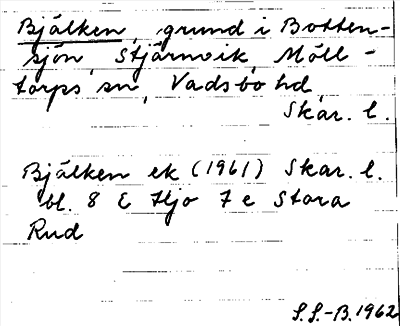 Bjälken, grund i Botten-
sjön, Stjärnvik, Möll-
torps sn, Vadsbo hd,
Skar. l.
Bjälken ek (1961) Skar. l.
bl. 8 E Hjo 7 e Stora
Rud
S.S.-B. 1962